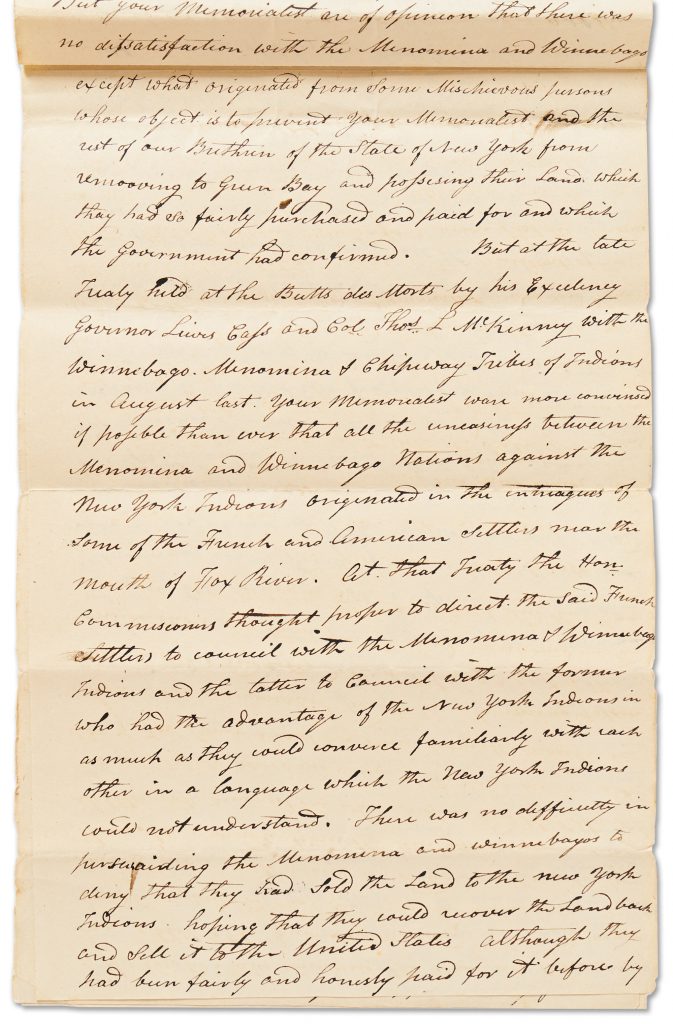 But your Memorialist are of opinion that there was
no dissatisfaction with the Menomina and Winnebago
except what originated from some Mischievous persons
whose object is to prevent your Memorialist and the
rest of our Brethrin of the State of New York from
remooving to Green Bay and possesing their Land which
thay had so fairly purchased and paid for and which
the Government had confirmed. But at the late
Treaty held at the Butts des Morts by his Excelency
Governor Lewis Cass and Col. Thos. L McKinney with the
Winnebago. Menomina & Chipeway Tribes of Indians
in August last. Your Memorialist ware more convinsed
if posible than ever that all the uneasiness between the
Menomina and Winnebago Nations against the
New York Indians originated in the intreagues of
some of the French and American Settlers near the
mouth of Fox River. At that Treaty the Hon
Commissioners thought proper to direct the said French
Settlers to council with the Menomina & Winnebago
Indians and the latter to Council with the former
who had the advantage of the New York Indians in
as much as they could converce familiarly with each
other in a language which the New York Indians
could not understand. There was no difficulty in
perswaiding the Menomina and Winnebagos to
deny that they had sold the Land to the New York
Indians hoping that they could recover the Land back
and sell it to the United States although they
had been fairly and honestly paid for it before by